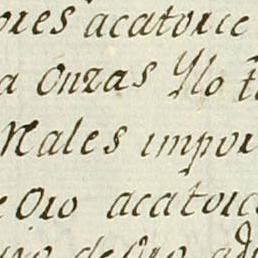 ores acatorce
a Onzas Ylo
Males impor
e Oro acatorce
de Oro